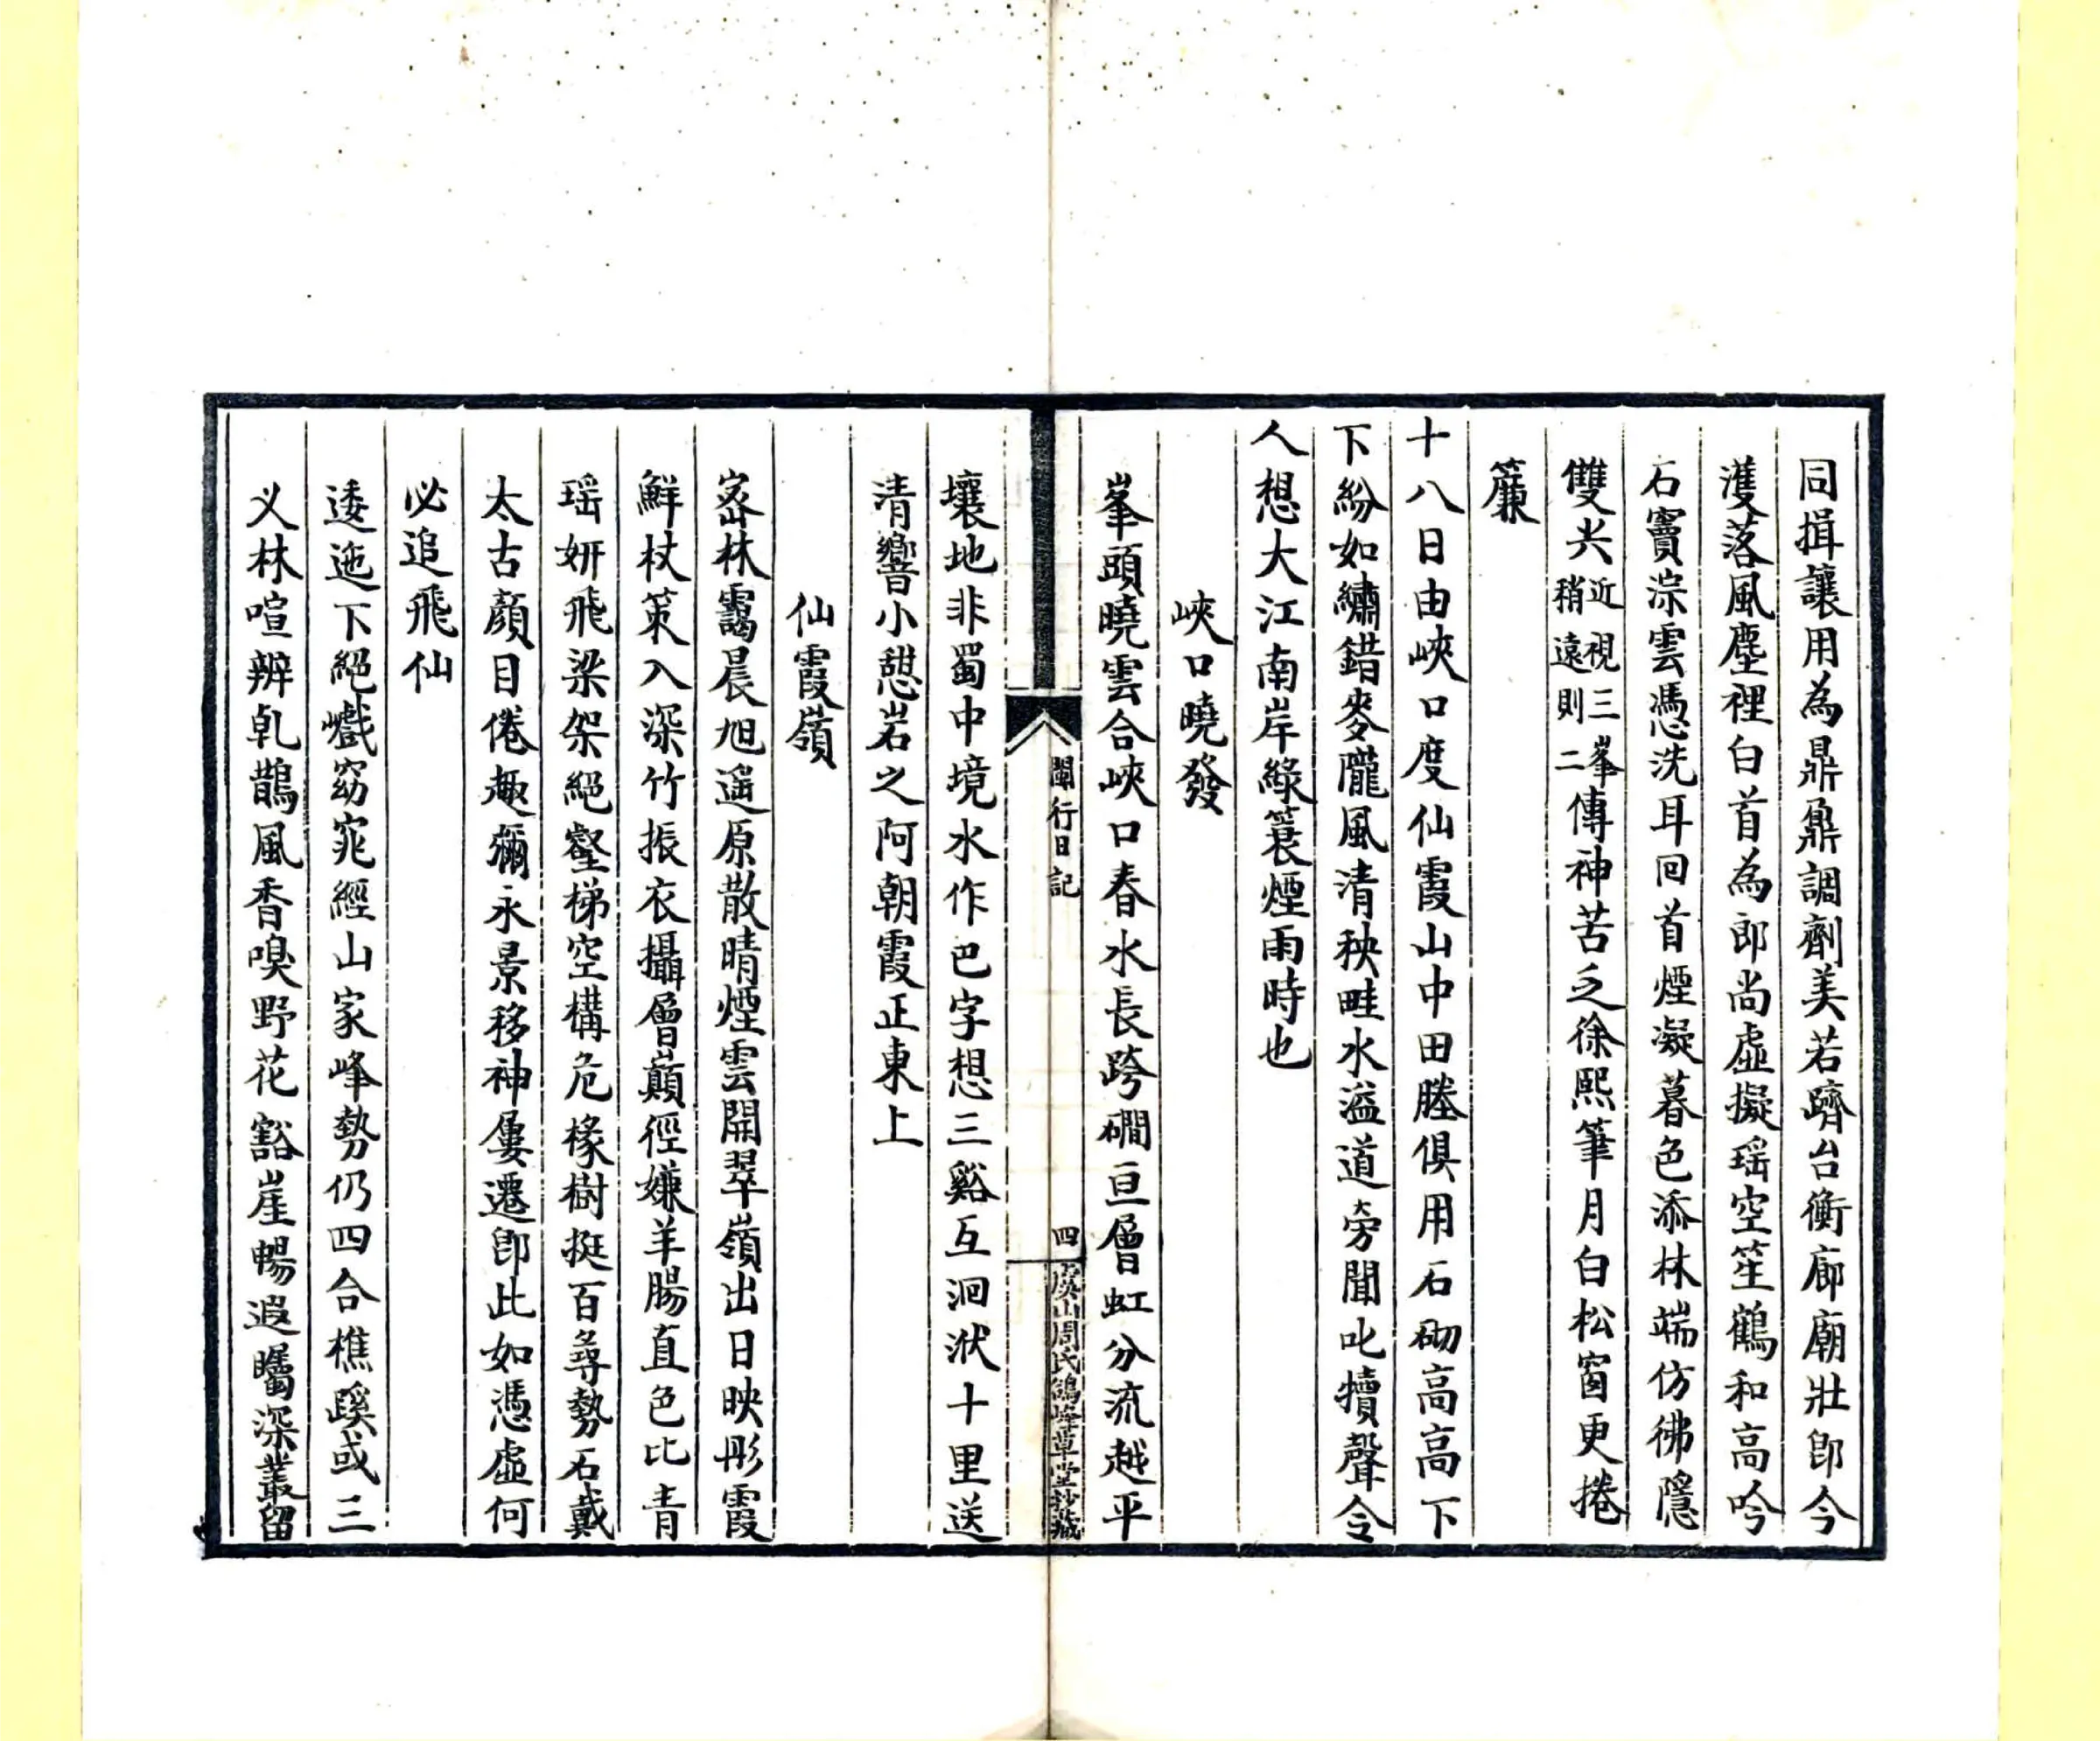 同揖讓用為鼎鼐調劑美若躋台衡廊廟壯即今
濩落風塵裡白首為郎尚虛擬瑶空笙鶴和高吟
石竇淙雲憑洗耳回首煙凝暮色添林端仿彿隱
雙尖近視三峯稍遠則二傳神苦乏徐熙筆月白松窗更捲
簾
十八日由峽口度仙霞山中田塍俱用石砌高高下
下紛如繡錯麥隴風清秧畦水溢道旁聞叱犢聲令
人想大江南岸綠蓑煙雨時也
峽口曉發
峯頭曉雲合峽口春水長跨磵亘層虹分流越平
閩行日記
四
虞山周氏鴿峰草堂抄藏
壤地非蜀中境水作巴字想三谿互洄洑十里送
清響小憇岩之阿朝霞正東上
仙霞嶺
密林靄晨旭遥原散晴煙雲開翠嶺出日映彤霞
鮮杖策入深竹振衣攝層巔徑嫌羊腸直色比青
瑶妍飛梁架絕壑梯空構危椽樹挺百尋勢石戴
太古顏目倦趣彌永景移神屢遷卽此如憑虛何
必追飛仙
逶迤下絕巘窈窕經山家峰勢仍四合樵蹊或三
义林喧辨乹鵲風香嗅野花豁崖暢遐矚深叢留